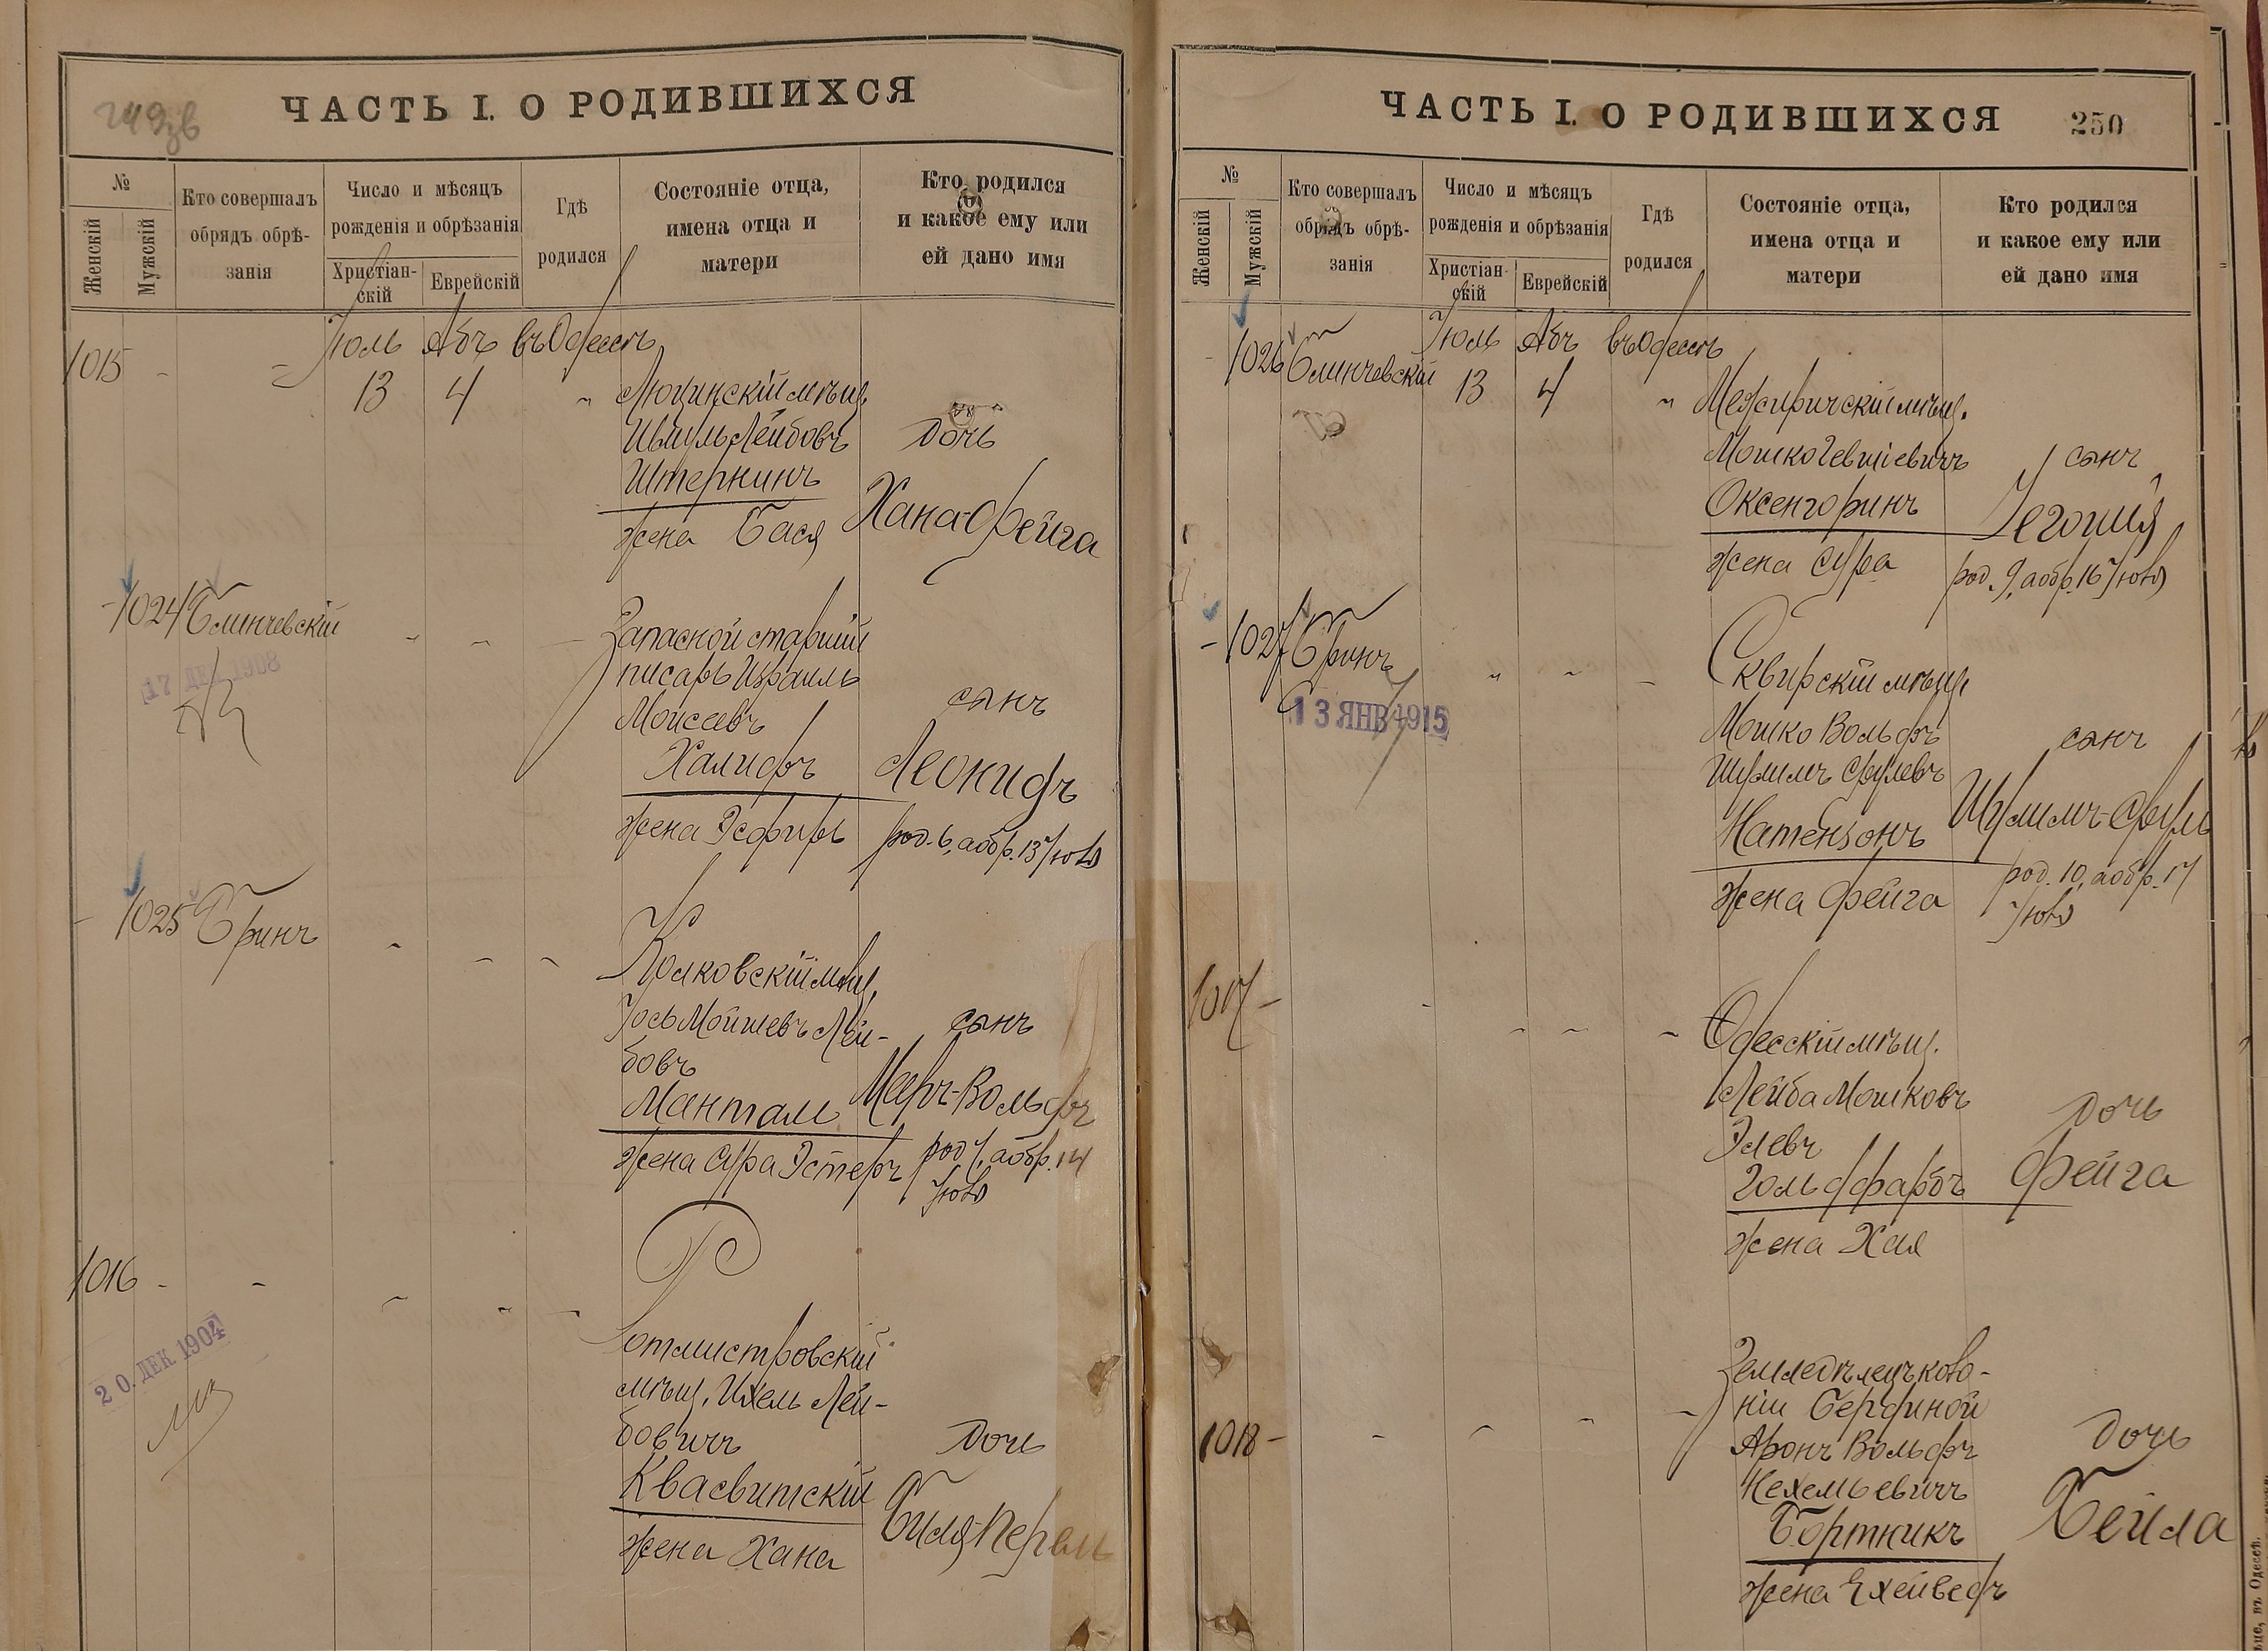 249зв
ЧАСТЬ I. О РОДИВШИХСЯ
№
Женскій
Мужскій
Кто совершалъ
обрядъ обрѣ-
занія
Число и мѣсяцъ
рожденія и обрѣзанія
Христіан-
скій
Еврейскій
Гдѣ
родился
Состояніе отца,
имена отца и
матери
Кто родился
и какое ему или
ей дано имя
Іюль Абъ въ Одессѣ
1015 - 13 4 Люцинскій мѣщ.
Шмуль Лейбовъ дочь
Штеркинъ
жена Бася Хана-Фейга
1024 Блинчевскій Запасной старшій
17 ДЕК 1908
писарь Израиль
Моисеевъ сынъ
Халифъ Леонидъ
жена Эсфирь род. 6, а обр. 13 Іюля
1025 Бринъ
Колковскій мѣщ.
Іось Мойшевъ Лей- сынъ
бовъ
Манталь Маръ-Вольфъ
жена Сура Эстеръ род. 7, а обр. 14
Іюля
1016 -
20. ДЕК 1904
Ротмистровскій
мѣщ. Ихель Лей-
бовичъ дочь
Квасвитскій
жена Хана Биля-Перель
ЧАСТЬ I. О РОДИВШИХСЯ 250
№
Женскій
Мужскій
Кто совершалъ
обрядъ обрѣ-
занія
Число и мѣсяцъ
рожденія и обрѣзанія
Христіан-
скій
Еврейскій
Гдѣ
родился
Состояніе отца,
имена отца и
матери
Кто родился
и какое ему или
ей дано имя
Іюль Абъ въ Одессѣ
1026 Блинчевскій 13 4 Межиричскій мѣщ.
Мошко Іевшіевичъ сынъ
Оксенгоринъ Іегошія
жена Сура род. 9, а обр. 16 Іюля
1027 Бринъ Сквирскій мѣщ.
13 ЯНВ 1915
Мошко Вольфъ сынъ
Шулимъ Срулевъ
Натензонъ Шулимъ-Сруль
жена Фейга род. 10, а обр. 17
Іюля
1017 - Одесскій мѣщ.
Лейба Мошковъ дочь
Элевъ
Гольдфарбъ Фейга
жена Хая
Земледѣлецъ коло-
1018 - ніи Бердиной дочь
Аронъ Вольфъ
Нехемьевичъ
Бортникъ Бейла
жена Ехейведъ